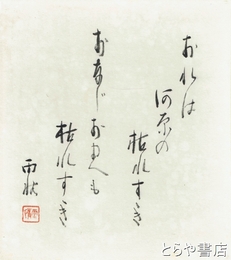 おれは
河原の
枯れすき
おなじおまへも
枯れすき
雨情
とらや書店